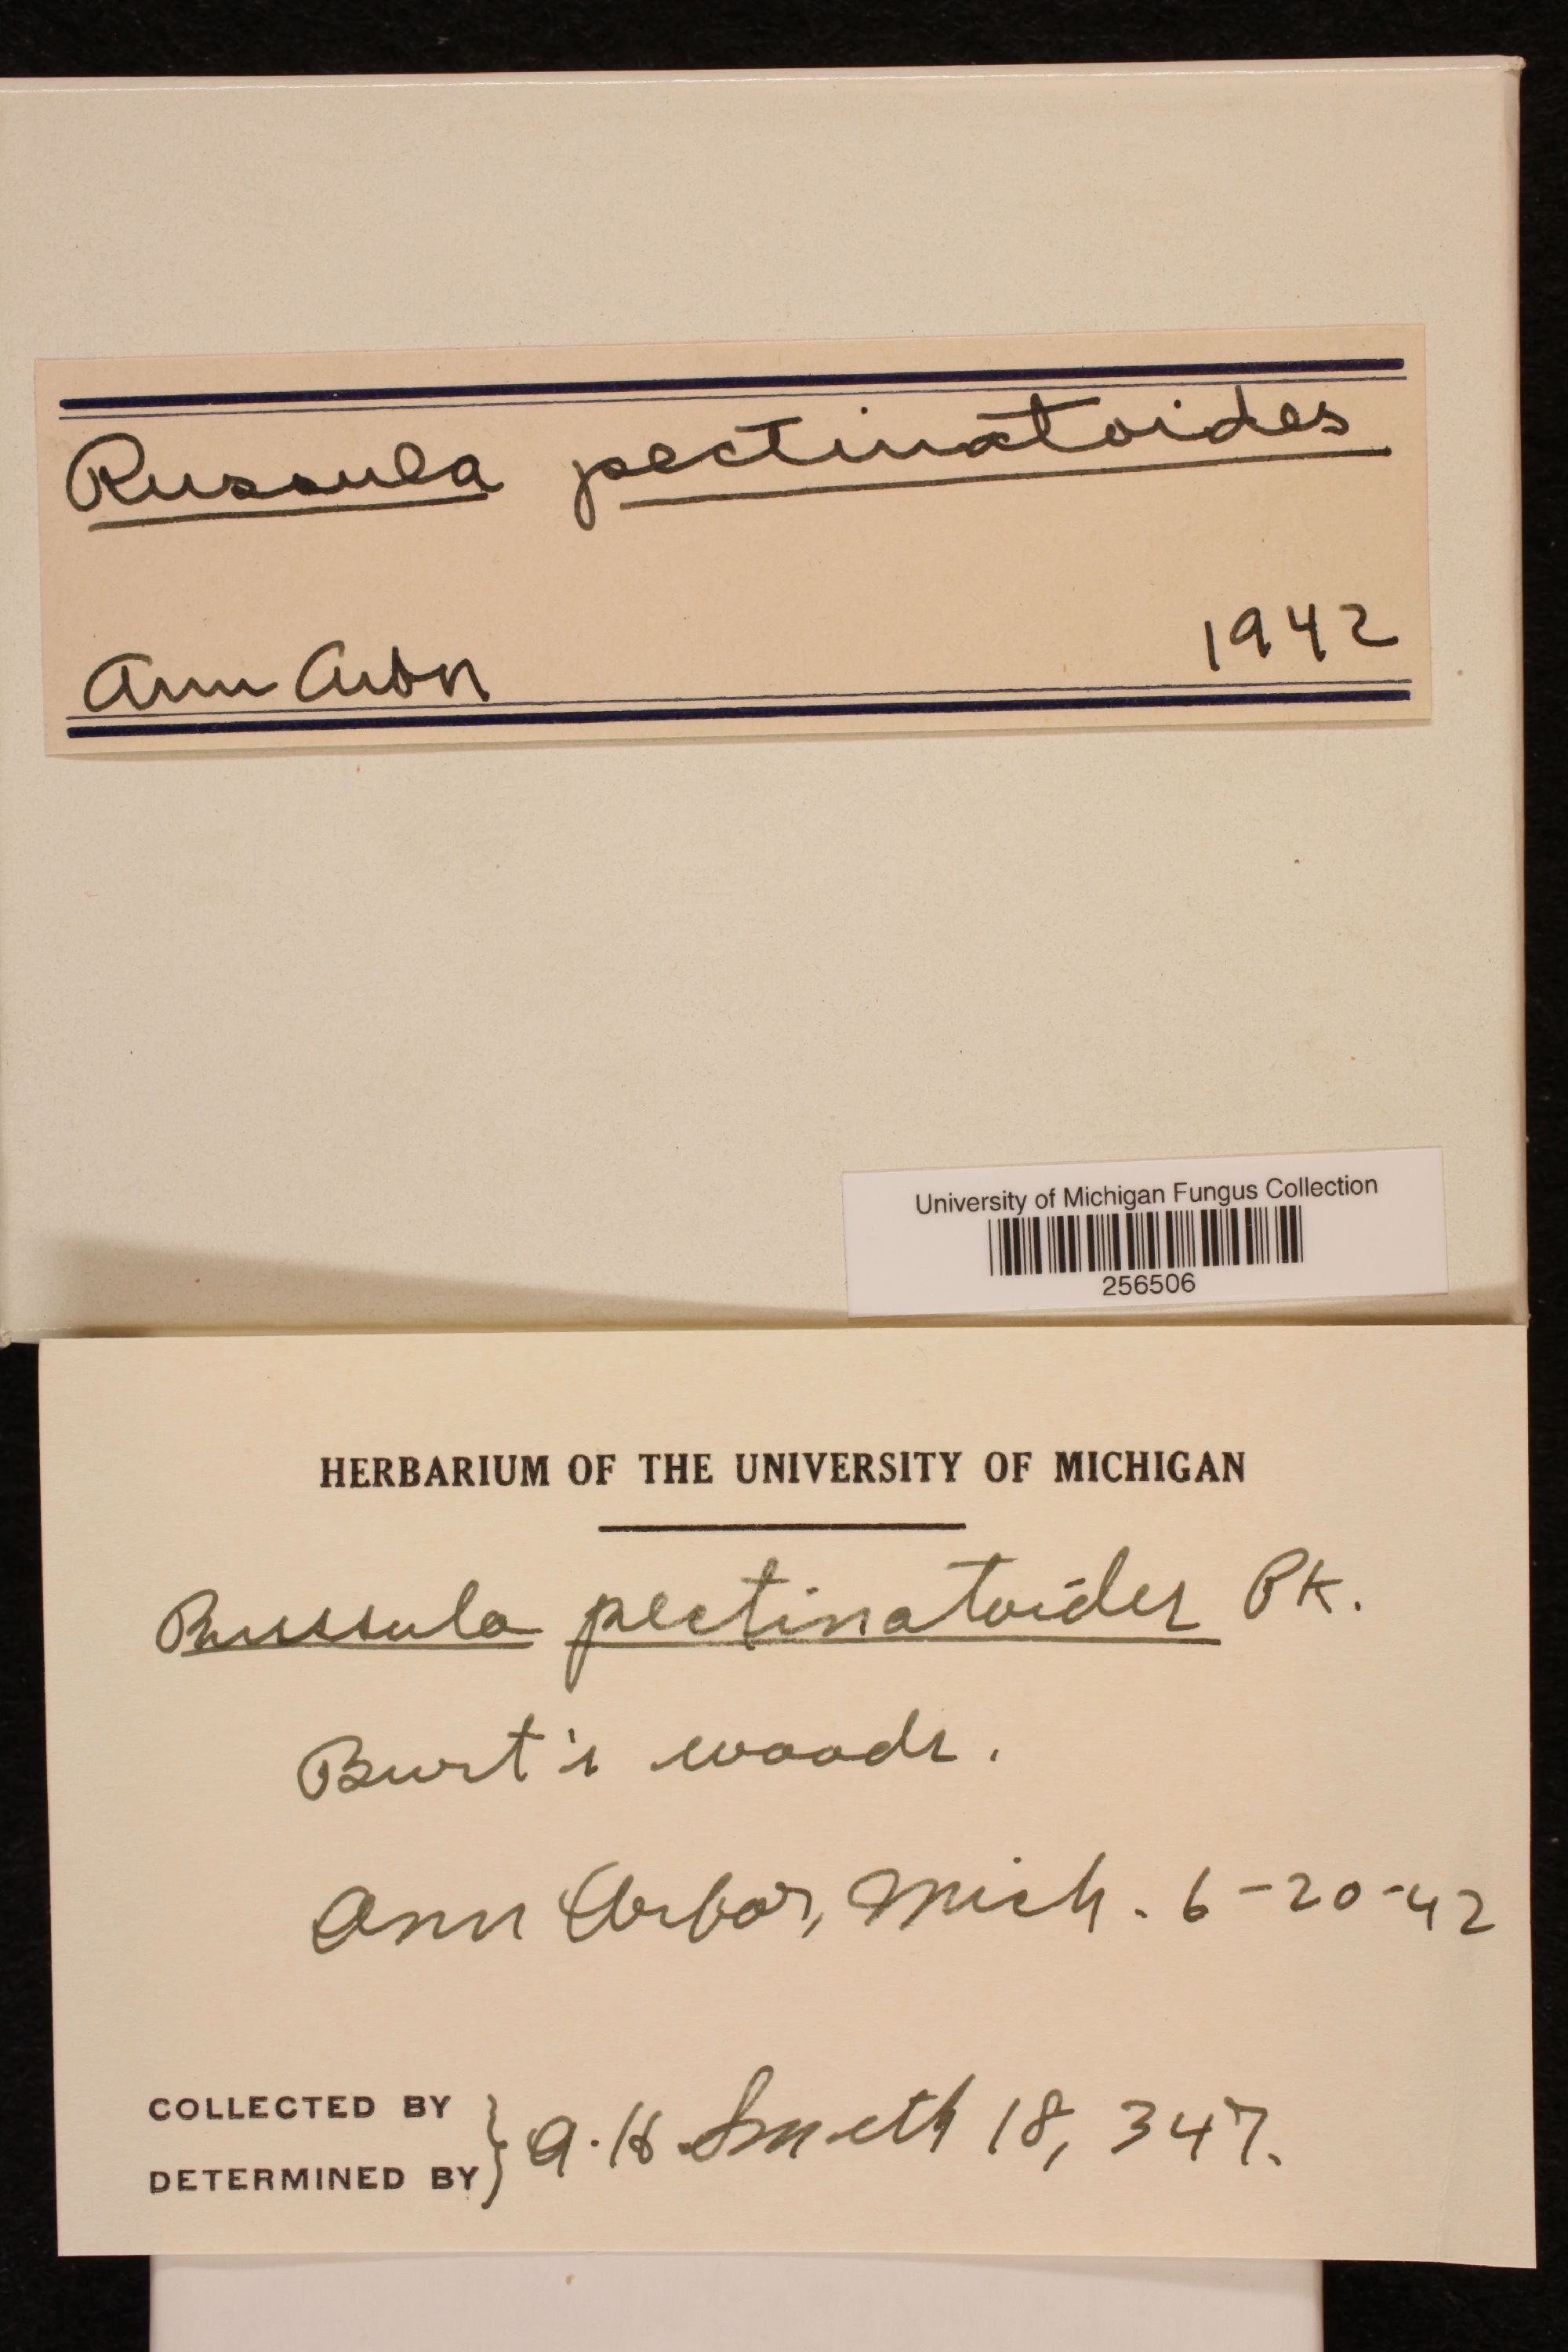 Russula pectinatoides
Ann Arbor 1942
University of Michigan Fungus Collection
256506
HERBARIUM OF THE UNIVERSITY OF MICHIGAN
Russula pectinatoides Pk.
Burt's woods.
Ann Arbor, Mich. 6-20-42
COLLECTED BY
DETERMINED BY } A. H. Smith 18, 347.